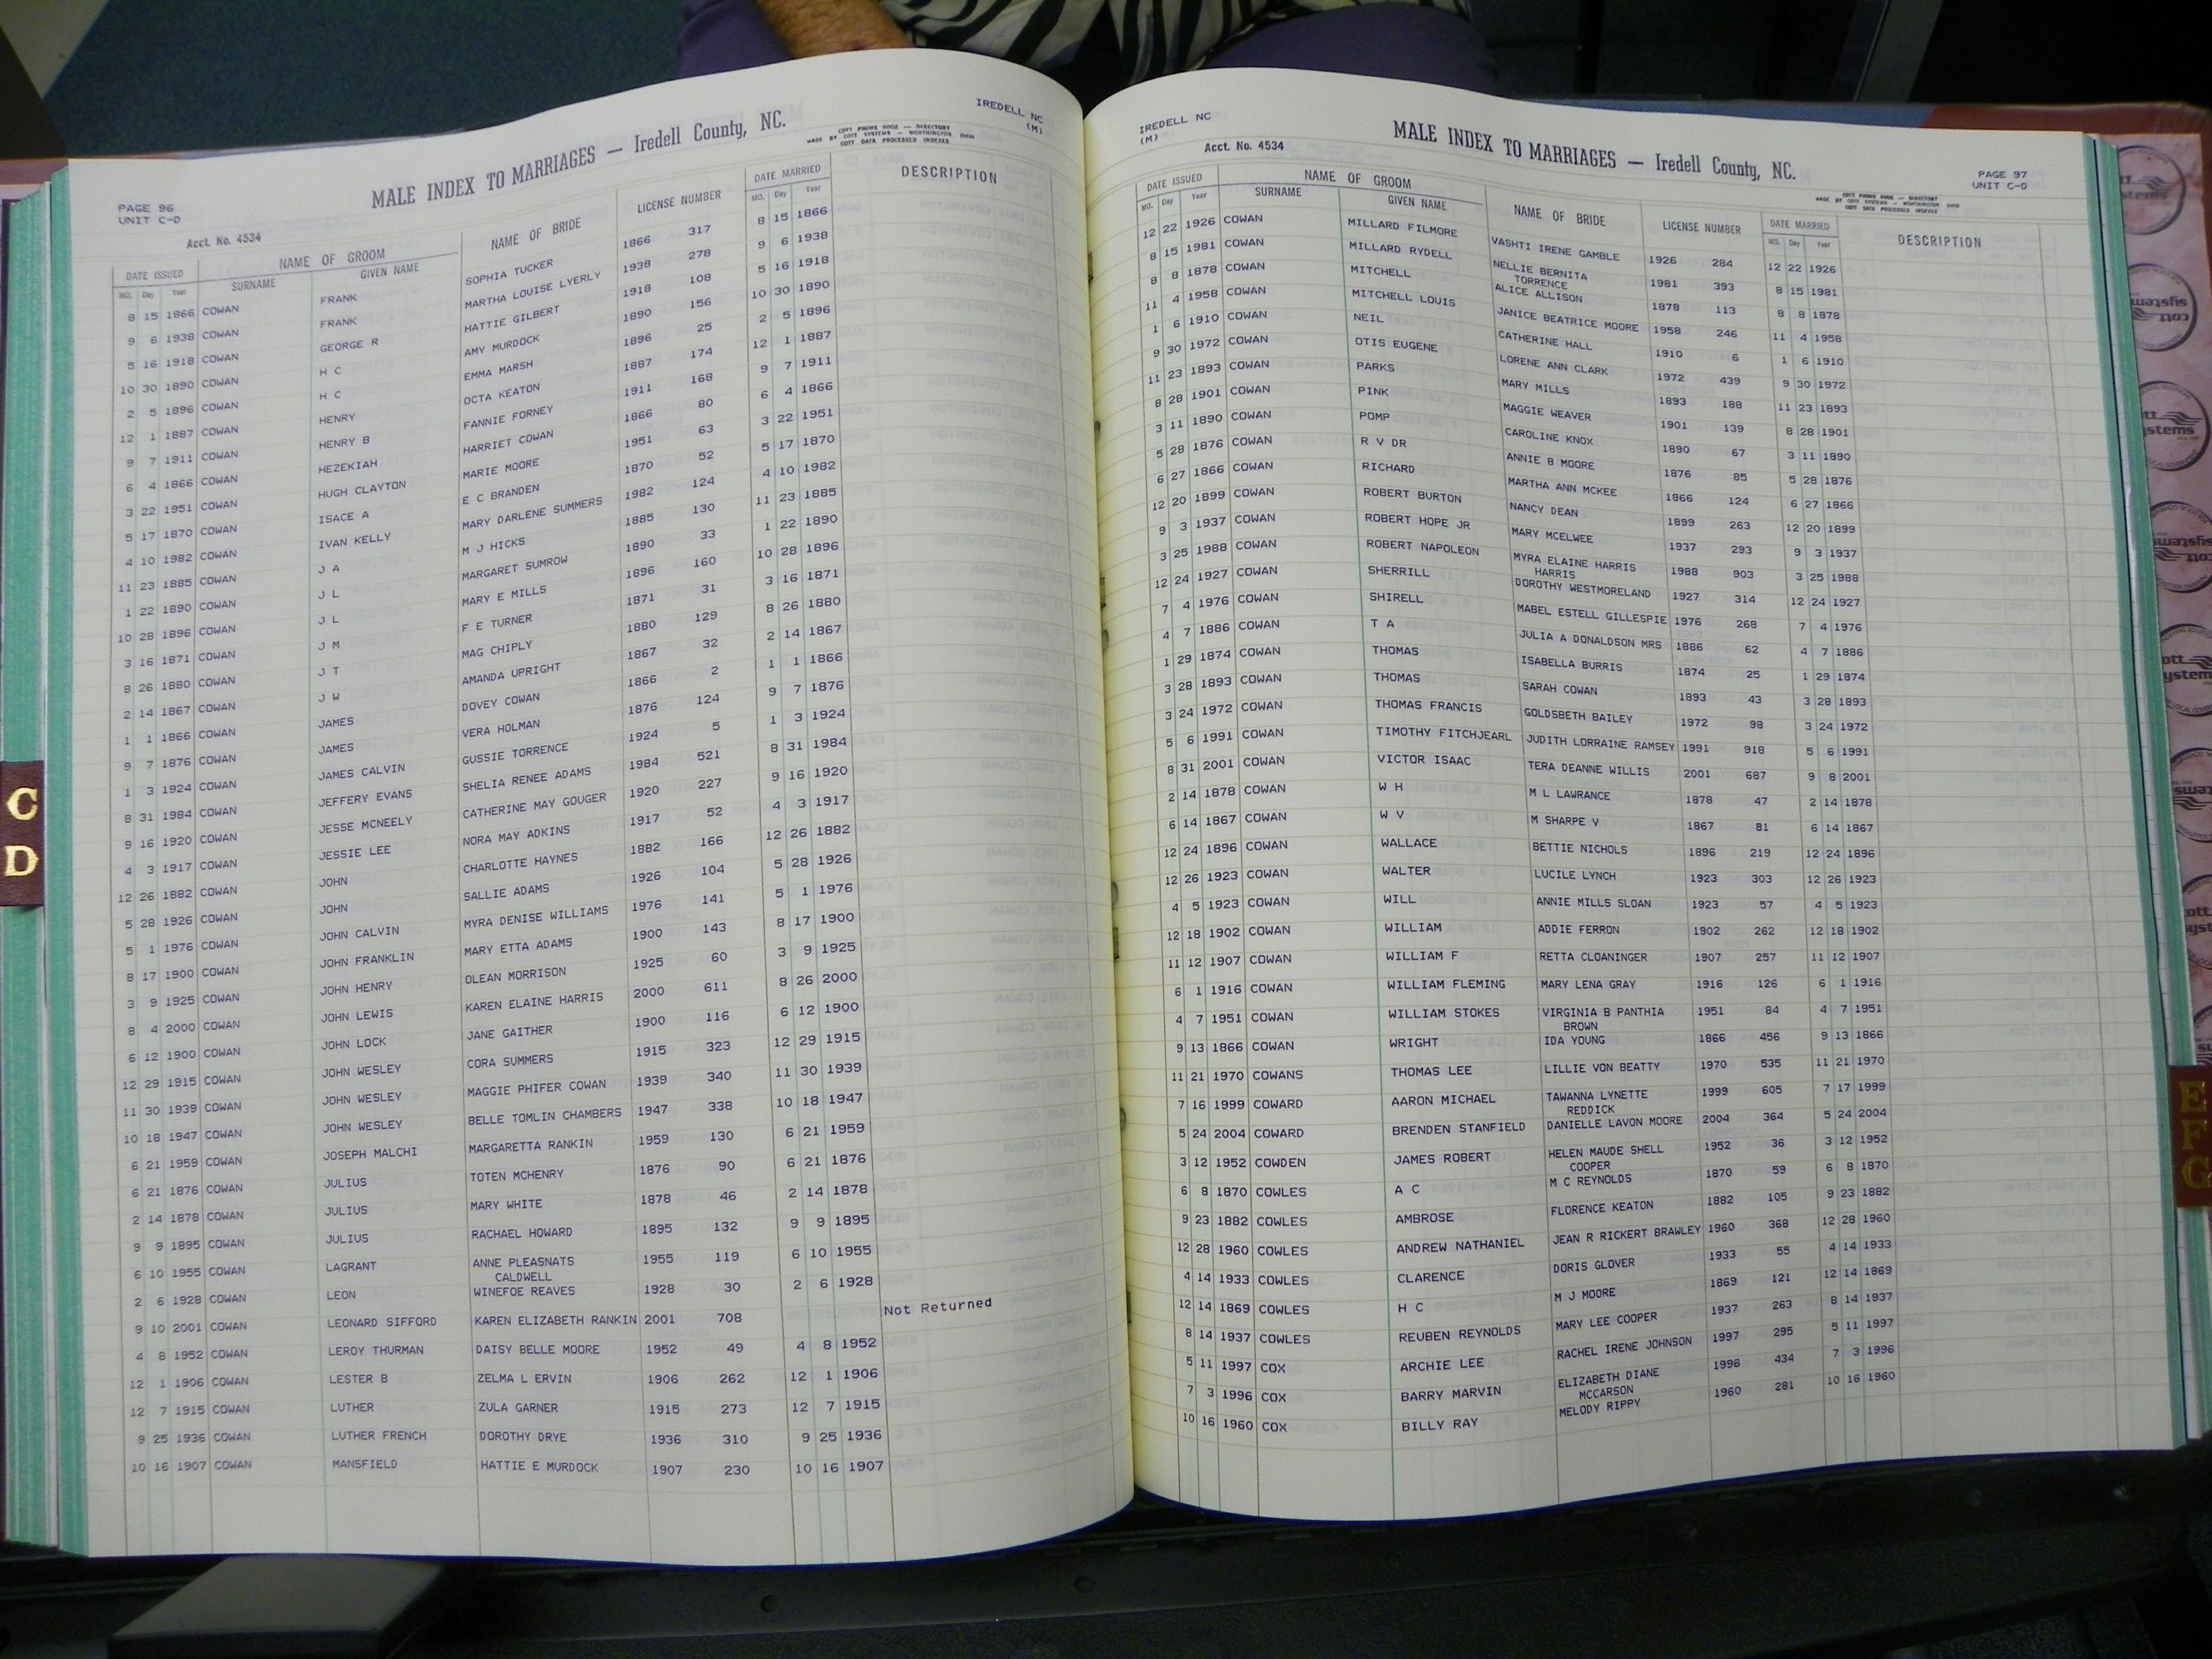 IREDELL NC
(M)
MALE INDEX TO MARRIAGES — Iredell County, NC.
MADE BY COTT PHONE BOOK — DIRECTORY
COTT SYSTEMS — WORTHINGTON, OHIO
COTT DATA PROCESSED INDEXES
PAGE 96
UNIT C-D
Acct. No. 4534
DATE ISSUED NAME OF GROOM NAME OF BRIDE LICENSE NUMBER DATE MARRIED DESCRIPTION
MO. Day Year SURNAME GIVEN NAME MO. Day Year
8 15 1866 COWAN FRANK SOPHIA TUCKER 1866 317 8 15 1866
9 6 1938 COWAN FRANK MARTHA LOUISE LYERLY 1938 278 9 6 1938
5 16 1918 COWAN GEORGE R HATTIE GILBERT 1918 108 5 16 1918
10 30 1890 COWAN H C AMY MURDOCK 1890 156 10 30 1890
2 5 1896 COWAN H C EMMA MARSH 1896 25 2 5 1896
12 1 1887 COWAN HENRY OCTA KEATON 1887 174 12 1 1887
9 7 1911 COWAN HENRY B FANNIE FORNEY 1911 168 9 7 1911
6 4 1866 COWAN HEZEKIAH HARRIET COWAN 1866 80 6 4 1866
3 22 1951 COWAN HUGH CLAYTON MARIE MOORE 1951 63 3 22 1951
5 17 1870 COWAN ISACE A E C BRANDEN 1870 52 5 17 1870
4 10 1982 COWAN IVAN KELLY MARY DARLENE SUMMERS 1982 124 4 10 1982
11 23 1885 COWAN J A M J HICKS 1885 130 11 23 1885
1 22 1890 COWAN J L MARGARET SUMROW 1890 33 1 22 1890
10 28 1896 COWAN J L MARY E MILLS 1896 160 10 28 1896
3 16 1871 COWAN J M F E TURNER 1871 31 3 16 1871
8 26 1880 COWAN J T MAG CHIPLY 1880 129 8 26 1880
2 14 1867 COWAN J W AMANDA UPRIGHT 1867 32 2 14 1867
1 1 1866 COWAN JAMES DOVEY COWAN 1866 2 1 1 1866
9 7 1876 COWAN JAMES VERA HOLMAN 1876 124 9 7 1876
1 3 1924 COWAN JAMES CALVIN GUSSIE TORRENCE 1924 5 1 3 1924
8 31 1984 COWAN JEFFERY EVANS SHELIA RENEE ADAMS 1984 521 8 31 1984
9 16 1920 COWAN JESSE MCNEELY CATHERINE MAY GOUGER 1920 227 9 16 1920
4 3 1917 COWAN JESSIE LEE NORA MAY ADKINS 1917 52 4 3 1917
12 26 1882 COWAN JOHN CHARLOTTE HAYNES 1882 166 12 26 1882
5 28 1926 COWAN JOHN SALLIE ADAMS 1926 104 5 28 1926
5 1 1976 COWAN JOHN CALVIN MYRA DENISE WILLIAMS 1976 141 5 1 1976
8 17 1900 COWAN JOHN FRANKLIN MARY ETTA ADAMS 1900 143 8 17 1900
3 9 1925 COWAN JOHN HENRY OLEAN MORRISON 1925 60 3 9 1925
8 4 2000 COWAN JOHN LEWIS KAREN ELAINE HARRIS 2000 611 8 26 2000
6 12 1900 COWAN JOHN LOCK JANE GAITHER 1900 116 6 12 1900
12 29 1915 COWAN JOHN WESLEY CORA SUMMERS 1915 323 12 29 1915
11 30 1939 COWAN JOHN WESLEY MAGGIE PHIFER COWAN 1939 340 11 30 1939
10 18 1947 COWAN JOHN WESLEY BELLE TOMLIN CHAMBERS 1947 338 10 18 1947
6 21 1959 COWAN JOSEPH MALCHI MARGARETTA RANKIN 1959 130 6 21 1959
6 21 1876 COWAN JULIUS TOTEN MCHENRY 1876 90 6 21 1876
2 14 1878 COWAN JULIUS MARY WHITE 1878 46 2 14 1878
9 9 1895 COWAN JULIUS RACHAEL HOWARD 1895 132 9 9 1895
6 10 1955 COWAN LAGRANT ANNE PLEASNATS 1955 119 6 10 1955
CALDWELL
2 6 1928 COWAN LEON WINEFOE REAVES 1928 30 2 6 1928
9 10 2001 COWAN LEONARD SIFFORD KAREN ELIZABETH RANKIN 2001 708 Not Returned
4 8 1952 COWAN LEROY THURMAN DAISY BELLE MOORE 1952 49 4 8 1952
12 1 1906 COWAN LESTER B ZELMA L ERVIN 1906 262 12 1 1906
12 7 1915 COWAN LUTHER ZULA GARNER 1915 273 12 7 1915
9 25 1936 COWAN LUTHER FRENCH DOROTHY DRYE 1936 310 9 25 1936
10 16 1907 COWAN MANSFIELD HATTIE E MURDOCK 1907 230 10 16 1907
C
D
IREDELL NC
(M)
Acct. No. 4534
MALE INDEX TO MARRIAGES — Iredell County, NC.
PAGE 97
UNIT C-D
MADE BY COTT PHONE BOOK — DIRECTORY
COTT SYSTEMS — WORTHINGTON, OHIO
COTT DATA PROCESSED INDEXES
DATE ISSUED NAME OF GROOM NAME OF BRIDE LICENSE NUMBER DATE MARRIED DESCRIPTION
MO. Day Year SURNAME GIVEN NAME MO. Day Year
12 22 1926 COWAN MILLARD FILMORE VASHTI IRENE GAMBLE 1926 284 12 22 1926
8 15 1981 COWAN MILLARD RYDELL NELLIE BERNITA 1981 393 8 15 1981
TORRENCE
8 8 1878 COWAN MITCHELL ALICE ALLISON 1878 113 8 8 1878
11 4 1958 COWAN MITCHELL LOUIS JANICE BEATRICE MOORE 1958 246 11 4 1958
1 6 1910 COWAN NEIL CATHERINE HALL 1910 6 1 6 1910
9 30 1972 COWAN OTIS EUGENE LORENE ANN CLARK 1972 439 9 30 1972
11 23 1893 COWAN PARKS MARY MILLS 1893 188 11 23 1893
8 28 1901 COWAN PINK MAGGIE WEAVER 1901 139 8 28 1901
3 11 1890 COWAN POMP CAROLINE KNOX 1890 67 3 11 1890
5 28 1876 COWAN R V DR ANNIE B MOORE 1876 85 5 28 1876
6 27 1866 COWAN RICHARD MARTHA ANN MCKEE 1866 124 6 27 1866
12 20 1899 COWAN ROBERT BURTON NANCY DEAN 1899 263 12 20 1899
9 3 1937 COWAN ROBERT HOPE JR MARY MCELWEE 1937 293 9 3 1937
3 25 1988 COWAN ROBERT NAPOLEON MYRA ELAINE HARRIS 1988 903 3 25 1988
HARRIS
12 24 1927 COWAN SHERRILL DOROTHY WESTMORELAND 1927 314 12 24 1927
7 4 1976 COWAN SHIRELL MABEL ESTELL GILLESPIE 1976 268 7 4 1976
4 7 1886 COWAN T A JULIA A DONALDSON MRS 1886 62 4 7 1886
1 29 1874 COWAN THOMAS ISABELLA BURRIS 1874 25 1 29 1874
3 28 1893 COWAN THOMAS SARAH COWAN 1893 43 3 28 1893
3 24 1972 COWAN THOMAS FRANCIS GOLDSBETH BAILEY 1972 98 3 24 1972
5 6 1991 COWAN TIMOTHY FITCHJEARL JUDITH LORRAINE RAMSEY 1991 918 5 6 1991
8 31 2001 COWAN VICTOR ISAAC TERA DEANNE WILLIS 2001 687 9 8 2001
2 14 1878 COWAN W H M L LAWRANCE 1878 47 2 14 1878
6 14 1867 COWAN W V M SHARPE V 1867 81 6 14 1867
12 24 1896 COWAN WALLACE BETTIE NICHOLS 1896 219 12 24 1896
12 26 1923 COWAN WALTER LUCILE LYNCH 1923 303 12 26 1923
4 5 1923 COWAN WILL ANNIE MILLS SLOAN 1923 57 4 5 1923
12 18 1902 COWAN WILLIAM ADDIE FERRON 1902 262 12 18 1902
11 12 1907 COWAN WILLIAM F RETTA CLOANINGER 1907 257 11 12 1907
6 1 1916 COWAN WILLIAM FLEMING MARY LENA GRAY 1916 126 6 1 1916
4 7 1951 COWAN WILLIAM STOKES VIRGINIA B PANTHIA 1951 84 4 7 1951
BROWN
9 13 1866 COWAN WRIGHT IDA YOUNG 1866 456 9 13 1866
11 21 1970 COWANS THOMAS LEE LILLIE VON BEATTY 1970 535 11 21 1970
7 16 1999 COWARD AARON MICHAEL TAWANNA LYNETTE 1999 605 7 17 1999
REDDICK
5 24 2004 COWARD BRENDEN STANFIELD DANIELLE LAVON MOORE 2004 364 5 24 2004
3 12 1952 COWDEN JAMES ROBERT HELEN MAUDE SHELL 1952 36 3 12 1952
COOPER
6 8 1870 COWLES A C M C REYNOLDS 1870 59 6 8 1870
9 23 1882 COWLES AMBROSE FLORENCE KEATON 1882 105 9 23 1882
12 28 1960 COWLES ANDREW NATHANIEL JEAN R RICKERT BRAWLEY 1960 368 12 28 1960
4 14 1933 COWLES CLARENCE DORIS GLOVER 1933 55 4 14 1933
12 14 1869 COWLES H C M J MOORE 1869 121 12 14 1869
8 14 1937 COWLES REUBEN REYNOLDS MARY LEE COOPER 1937 263 8 14 1937
5 11 1997 COX ARCHIE LEE RACHEL IRENE JOHNSON 1997 295 5 11 1997
7 3 1996 COX BARRY MARVIN ELIZABETH DIANE 1996 434 7 3 1996
MCCARSON
10 16 1960 COX BILLY RAY MELODY RIPPY 1960 281 10 16 1960
E
F
G